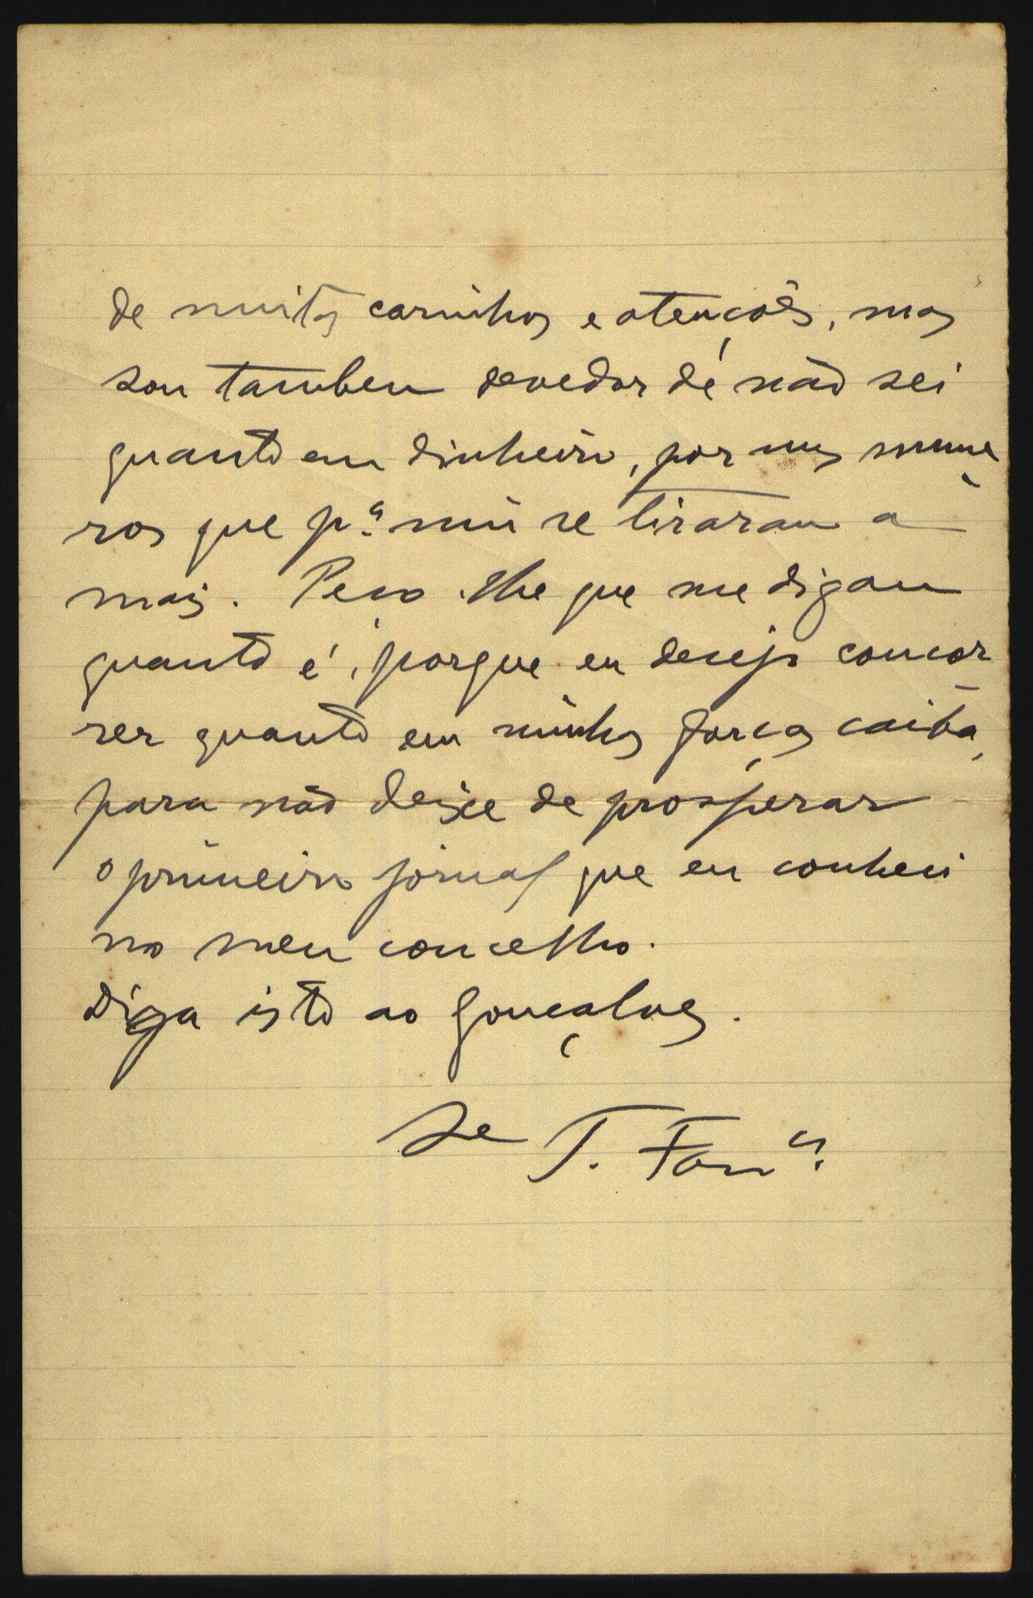 de muitos carinhos e atenções, mas
sou tambem devedor de não sei
quanto em dinheiro, por uns nume-
ros que p.ª mim se tiraram a
mais. Peço-lhe que me digam
quanto é, porque eu desejo concor-
rer quanto em minhas forças caiba,
para não deixe de prosperar
o primeiro jornal que eu conheci
no meu concelho.
Diga isto ao Gonçalves.
T.